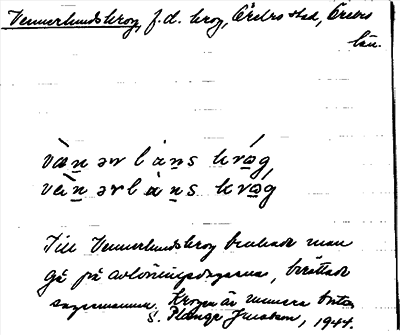 Vennerlundskrog, f.d. krog, Örebro stad, Örebro
län.
vànərlàns króg
vànərlàns króg
Till Vennerlundskrog brukade man
gå på avlöningsdagarna, berättade
sagesmannen. Krogen är numera
S. Jacobson, 1944.